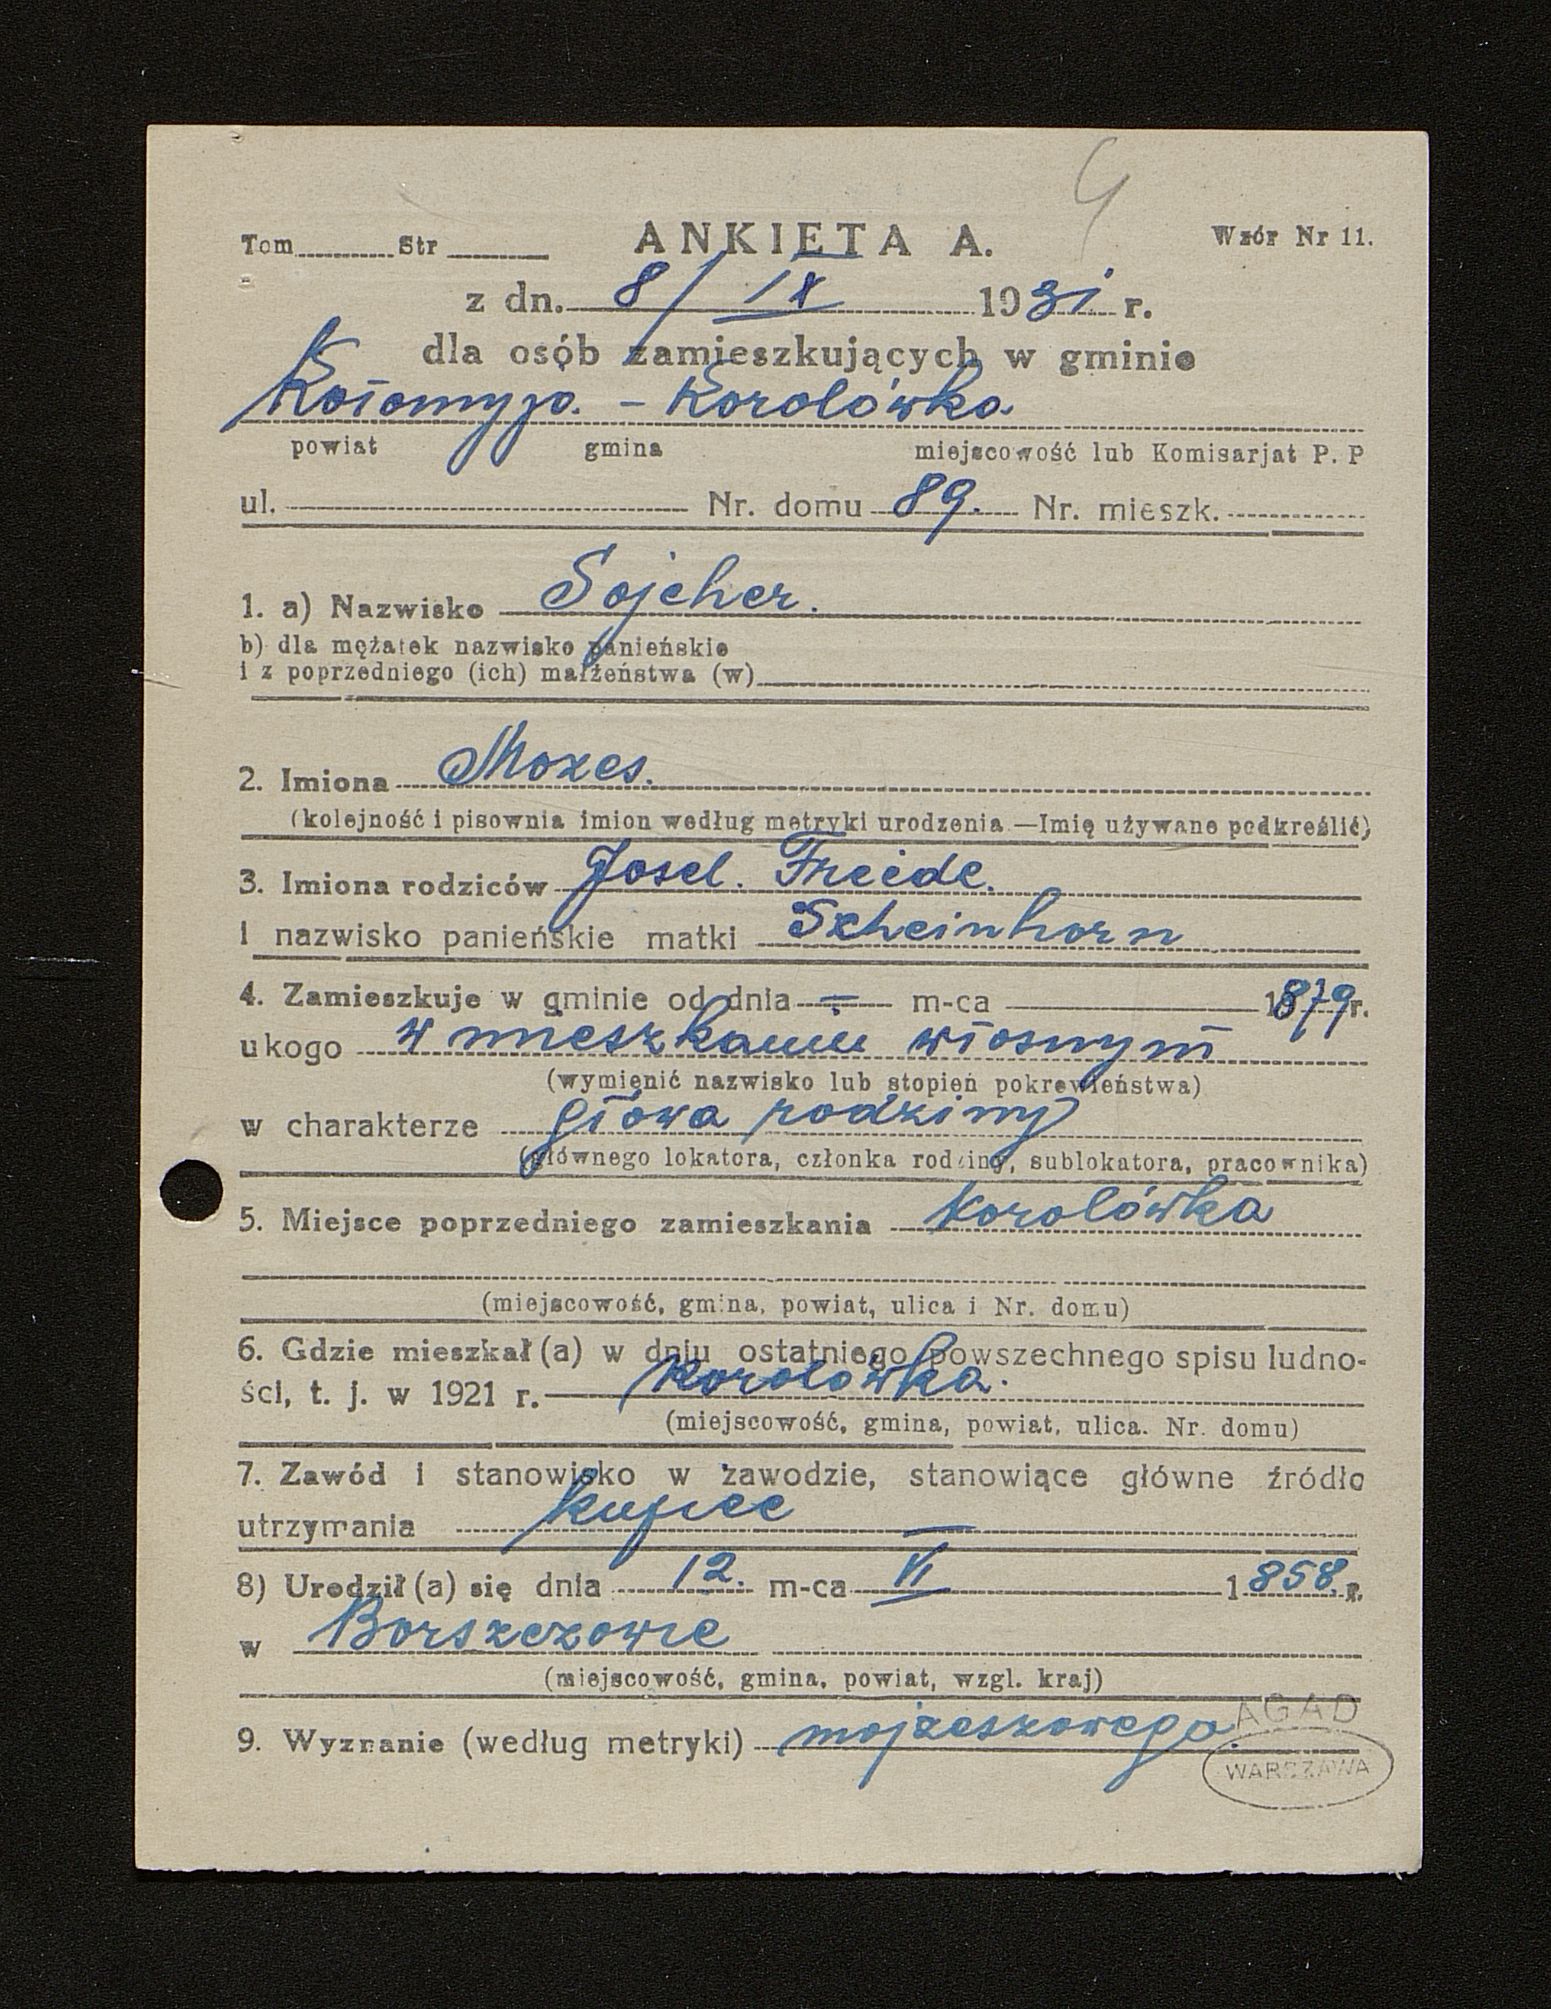 G
Tom Str ANKIETA A. Wzór Nr 11.
z dn. 8/IX 1931 r.
dla osób zamieszkujących w gminie
Kołomyja. - Korolówka
powiat gmina miejscowość lub Komisarjat P. P
ul. Nr. domu 89. Nr. mieszk.
1. a) Nazwisko Sojcher.
b) dla mężatek nazwisko panieńskie
i z poprzedniego (ich) małżeństwa (w)
2. Imiona Mozes.
(kolejność i pisownia imion według metryki urodzenia —Imię używane podkreślić)
3. Imiona rodziców Josel. Freide.
i nazwisko panieńskie matki Scheinhorn
4. Zamieszkuje w gminie od dnia - m-ca 1879 r.
u kogo w mieszkaniu własnym
(wymienić nazwisko lub stopień pokrewieństwa)
w charakterze głowa rodziny
(głównego lokatora, członka rodziny, sublokatora, pracownika)
5. Miejsce poprzedniego zamieszkania Korolówka
(miejscowość, gmina, powiat, ulica i Nr. domu)
6. Gdzie mieszkał (a) w dniu ostatniego powszechnego spisu ludno-
ści, t. j. w 1921 r. Korolówka.
(miejscowość, gmina, powiat, ulica. Nr. domu)
7. Zawód i stanowisko w zawodzie, stanowiące główne źródło
utrzymania kupiec
8) Urodził (a) się dnia 12. m-ca VI 1858. r.
w Borszczowie
(miejscowość, gmina, powiat, wzgl. kraj)
9. Wyznanie (według metryki) mojżeszowego.
AGAD
WARSZAWA